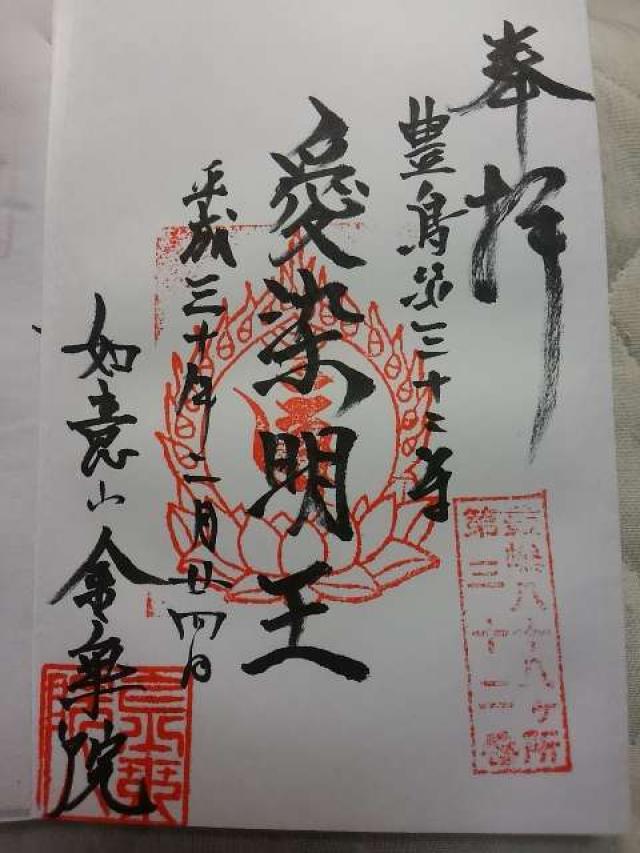 奉拝
豊島第三十二番
愛染明王
平成三十年二月廿四日
如意山 金乗院
八十八ヶ所
第三十二番